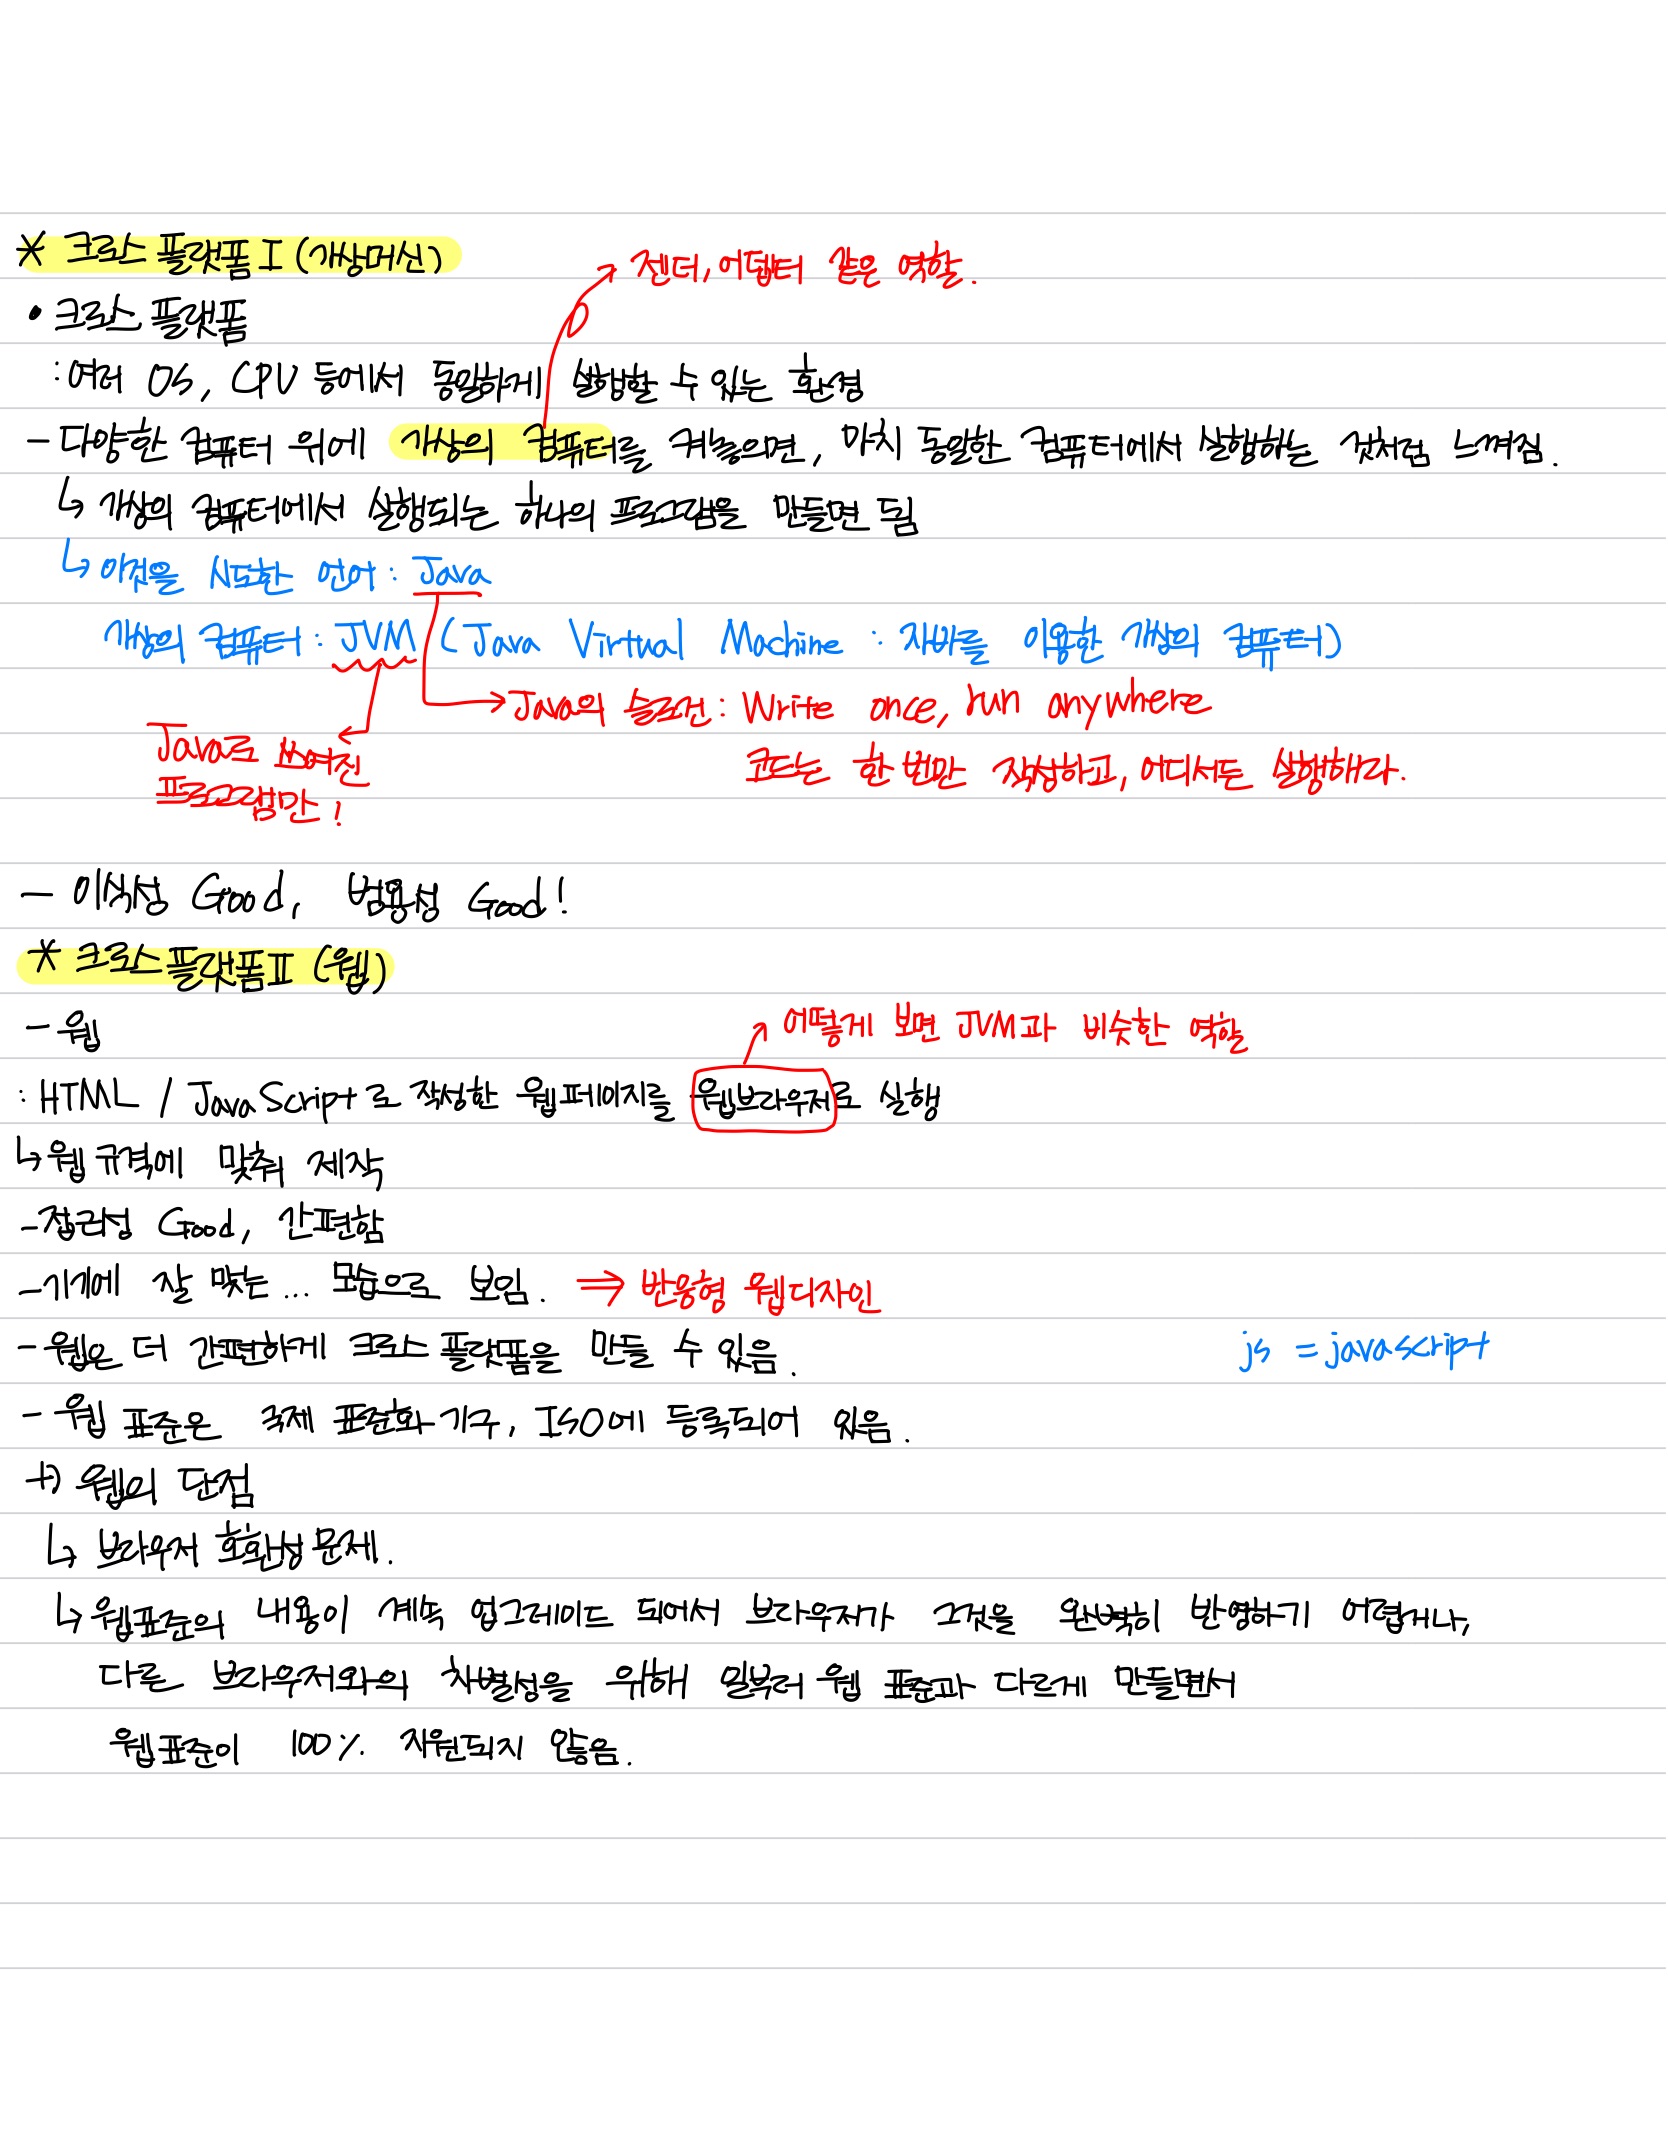 * 크로스 플랫폼 I (가상머신)
→ 젠더, 어댑터 같은 역할.
• 크로스 플랫폼
: 여러 OS, CPU 등에서 동일하게 실행할 수 있는 환경
- 다양한 컴퓨터 위에 가상의 컴퓨터를 켜놓으면, 마치 동일한 컴퓨터에서 실행하는 것처럼 느껴짐.
↳ 가상의 컴퓨터에서 실행되는 하나의 프로그램을 만들면 됨
↳ 이것을 시도한 언어 : Java
가상의 컴퓨터 : JVM (Java Virtual Machine : 자바를 이용한 가상의 컴퓨터)
→ Java의 슬로건 : Write once, run anywhere
Java로 쓰여진
코드는 한 번만 작성하고, 어디서든 실행해라.
프로그램만!
- 이식성 Good, 범용성 Good!
* 크로스 플랫폼 II (웹)
- 웹
→ 어떻게 보면 JVM과 비슷한 역할
: HTML / JavaScript로 작성한 웹페이지를 웹브라우저로 실행
↳ 웹 규격에 맞춰 제작
- 접근성 Good, 간편함
- 기기에 잘 맞는 ... 모습으로 보임. ⇒ 반응형 웹디자인
- 웹은 더 간편하게 크로스 플랫폼을 만들 수 있음.
js = javascript
- 웹 표준은 국제 표준화 기구, ISO에 등록되어 있음.
+) 웹의 단점
↳ 브라우저 호환성 문제.
↳ 웹표준의 내용이 계속 업그레이드 되어서 브라우저가 그것을 완벽히 반영하기 어렵거나,
다른 브라우저와의 차별성을 위해 일부러 웹 표준과 다르게 만들면서
웹표준이 100% 지원되지 않음.